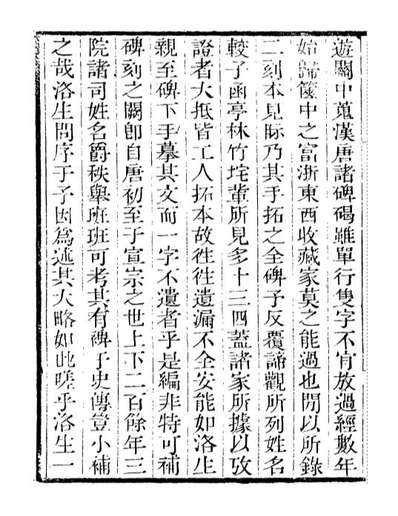 遊關中蒐漢唐諸碑碣雖單行隻字不肯放過經數年
始歸篋中之富浙東西收藏家莫之能過也閒以所錄
二刻本見眎乃其手拓之全碑予反覆諦觀所列姓名
較了函亭林竹垞軰所見多十三四葢諸家所據以攷
證者大抵皆工人拓本故徃徃遺漏不全安能如洛生
親至碑下手摹其文而一字不遺者乎是編非特可補
碑刻之闕卽自唐初至于宣宗之世上下二百餘年三
院諸司姓名爵秩舉班班可考其有裨于史傳豈小補
之哉洛生問序于予因爲述其大略如此嗟乎洛生一